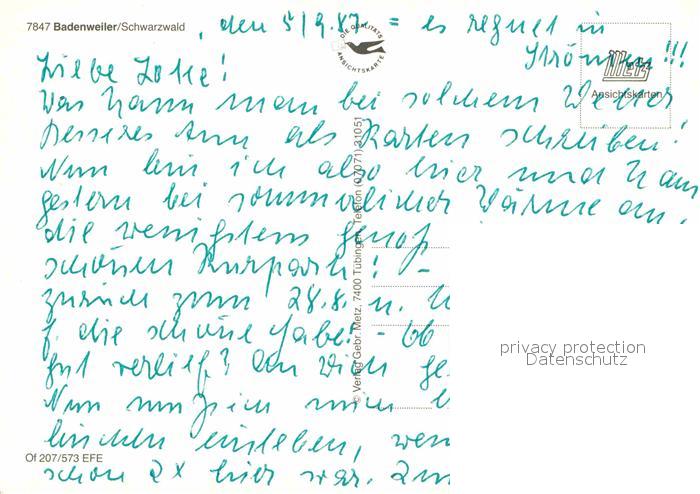 7847 Badenweiler/Schwarzwald
, den 5/9.87. = es regnet in
Strömen!!!
DIE QUALITÄTS
ANSICHTSKARTE
Metz
Ansichtskarten
Liebe Lotte!
Was kann man bei solchem Wetter
besseres tun als Karten schreiben!
Nun bin ich also hier und kam
gestern bei sommerlicher Wärme an.
die wenigstens genoß
schönen Kurpark! -
zurück zum 28.8. u.
f. die schöne Gabe! - Ob
gut verlief? An Dich ge
Nun muß ich mich
bischen einleben, wen
schon 2x hier war. Zum
© Verlag Gebr. Metz, 7400 Tübingen, Telefon (07071) 31051
privacy protection
Datenschutz
Of 207/573 EFE